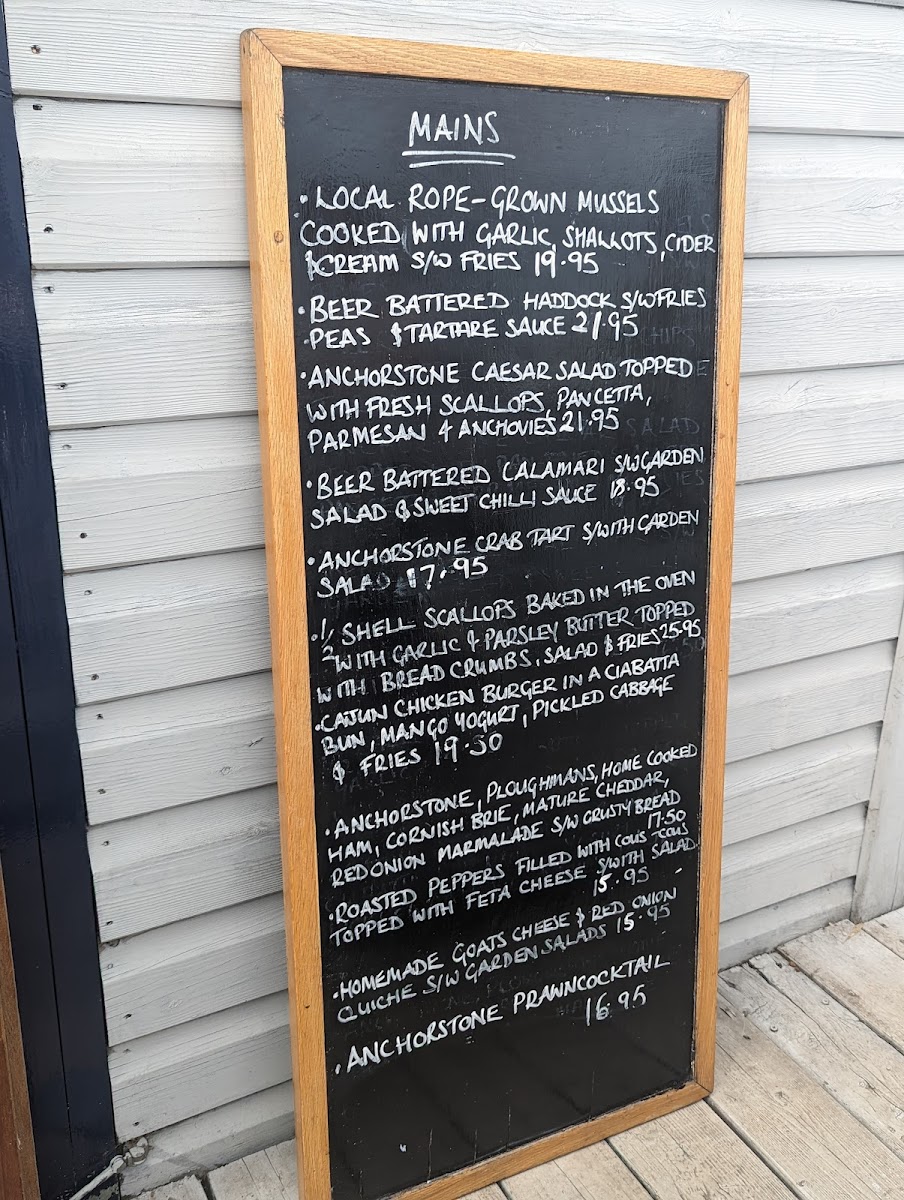 MAINS
• LOCAL ROPE-GROWN MUSSELS
COOKED WITH GARLIC, SHALLOTS, CIDER
& CREAM S/W FRIES 19.95
• BEER BATTERED HADDOCK S/W FRIES
PEAS & TARTARE SAUCE 21.95
• ANCHORSTONE CAESAR SALAD TOPPED
WITH FRESH SCALLOPS, PANCETTA,
PARMESAN & ANCHOVIES 21.95
• BEER BATTERED CALAMARI S/W GARDEN
SALAD & SWEET CHILLI SAUCE 18.95
• ANCHORSTONE CRAB TART S/WITH GARDEN
SALAD 17.95
• 1/2 SHELL SCALLOPS BAKED IN THE OVEN
WITH GARLIC & PARSLEY BUTTER TOPPED
WITH BREAD CRUMBS, SALAD & FRIES 25.95
• CAJUN CHICKEN BURGER IN A CIABATTA
BUN, MANGO YOGURT, PICKLED CABBAGE
& FRIES 19.50
• ANCHORSTONE, PLOUGHMANS, HOME COOKED
HAM, CORNISH BRIE, MATURE CHEDDAR,
RED ONION MARMALADE S/W CRUSTY BREAD
17.50
• ROASTED PEPPERS FILLED WITH COUS COUS
TOPPED WITH FETA CHEESE S/WITH SALAD
15.95
• HOMEMADE GOATS CHEESE & RED ONION
QUICHE S/W GARDEN SALADS 15.95
• ANCHORSTONE PRAWNCOCKTAIL
16.95